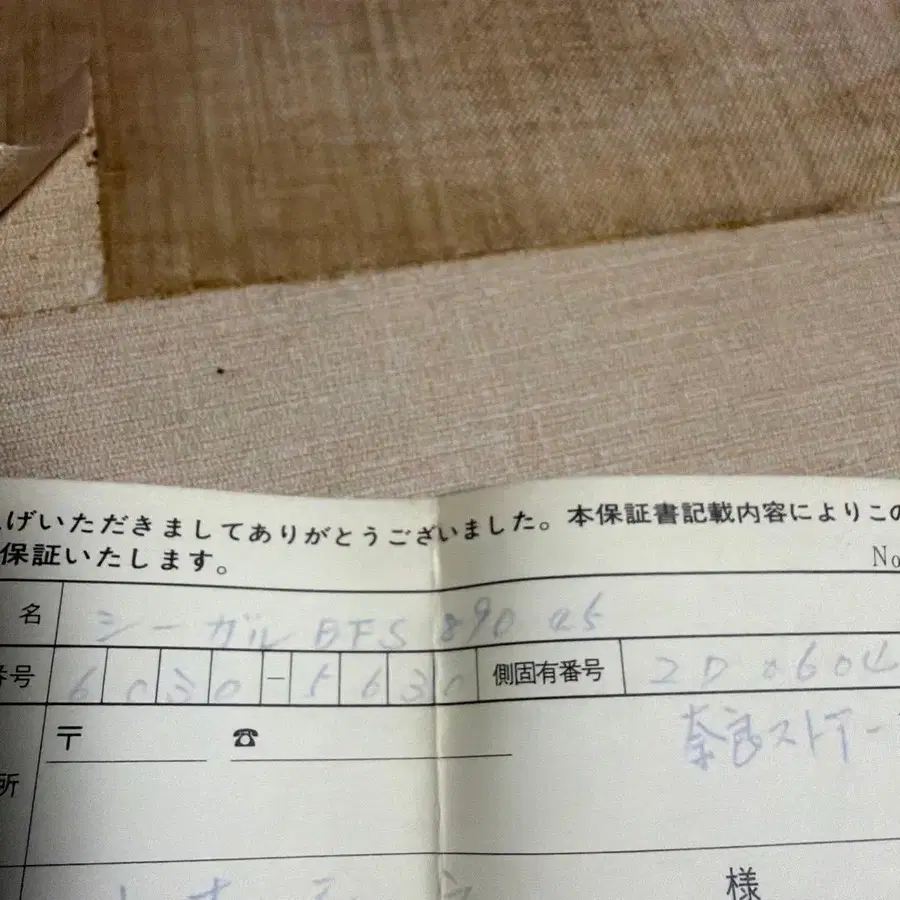 げいただきましてありがとうございました。本保証書記載内容によりこの
保証いたします。
No
名 シーガル BFS 890 25
番号 6030-5630 側固有番号 200604
〒 ☎
奈良ストアー
所
様